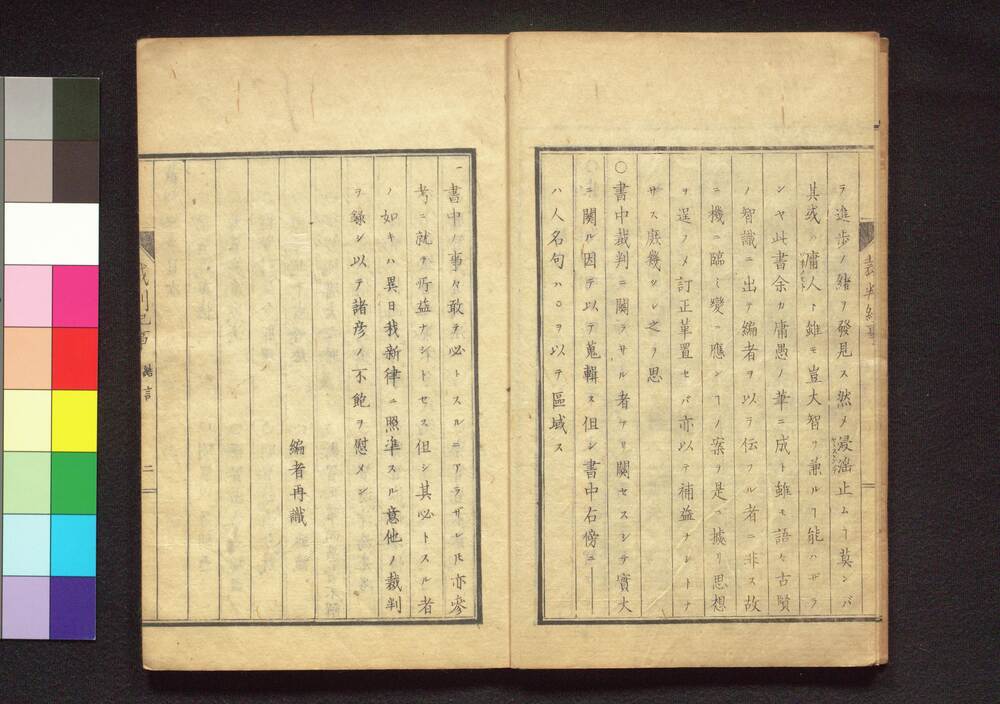 ラ進歩ノ緒ヲ發見ス然メ浸滛止ムヿ莫ンバ
其或ハ庸人ト雖モ豈大智ヲ兼ルヿ能ハザラ
ンヤ此書余カ庸愚ノ筆ニ成ト雖モ語々古賢
ノ智識ニ出テ編者ヲ以ラ伝フル者ニ非ス故
ニ機ニ臨ミ變ニ應シヿノ案ヲ是ニ據リ思想
ヲ逞フメ訂正革置セバ亦以テ補益ナレトナ
サス庶幾クレ之ヲ思
〇書中裁判ニ関ラサル者アリ関セスシテ實大
ニ関ル因テ以テ蒐輯ス但シ書中右傍ニ｜
ハ人名句ハ〇ヲ以テ區域ス
一書中ノ事々敢テ必トスルニアラザレ𪜈亦參
考ニ就テ所益ナシトセス但シ其必トスル者
ノ如キハ異日我新律ニ照準スル意他ノ裁判
ヲ錄シ以テ諸彦ノ不飽ヲ慰メン
編者再識
緒言
二